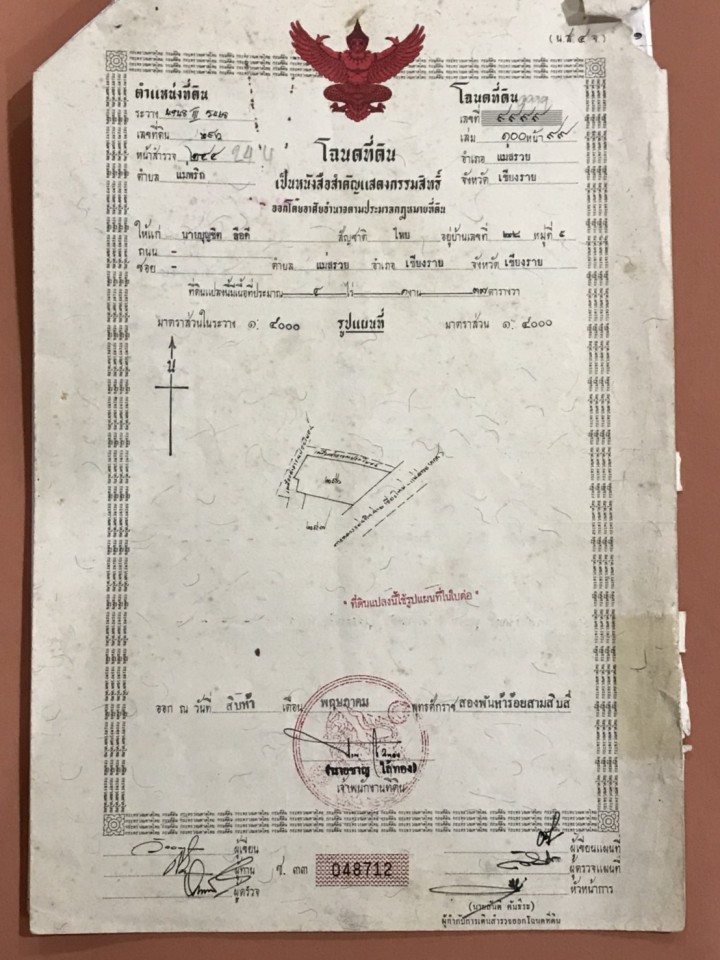 (น.ส. ๔ จ.)
ตำแหน่งที่ดิน
ระวาง
เลขที่ดิน ๒๕๖
หน้าสำรวจ ๒๔๔ 244
ตำบล แม่พริก
โฉนดที่ดิน
เลขที่ ๙๙๙๙ 9999
เล่ม ๑๐๐ หน้า ๙๙
อำเภอ แม่สรวย
จังหวัด เชียงราย
โฉนดที่ดิน
เป็นหนังสือสำคัญแสดงกรรมสิทธิ์
ออกโดยอาศัยอำนาจตามประมวลกฎหมายที่ดิน
ให้แก่ นายบุญชิต สัญชาติ ไทย อยู่บ้านเลขที่ ๒๒๘ หมู่ที่ ๕
ถนน -
ซอย - ตำบล แม่สรวย อำเภอ เชียงราย จังหวัด เชียงราย
ที่ดินแปลงนี้มีเนื้อที่ประมาณ ๔ ไร่ งาน ๓๗ ตารางวา
มาตราส่วนในระวาง ๑: ๔๐๐๐ รูปแผนที่ มาตราส่วน ๑: ๔๐๐๐
น
๒๕๖
" ที่ดินแปลงนี้ใช้รูปแผนที่ในใบต่อ "
ออก ณ วันที่ สิบห้า เดือน พฤษภาคม พุทธศักราช สองพันห้าร้อยสามสิบสี่
(นายชาญ ใส้ทอง)
เจ้าพนักงานที่ดิน
ผู้เขียน
ผู้ทาน
ผู้ตรวจ
ช. ๓๓ 048712
ผู้เขียนแผนที่
ผู้ตรวจแผนที่
หัวหน้าการ
(นายสันติ คันธีระ)
ผู้กำกับการเดินสำรวจออกโฉนดที่ดิน